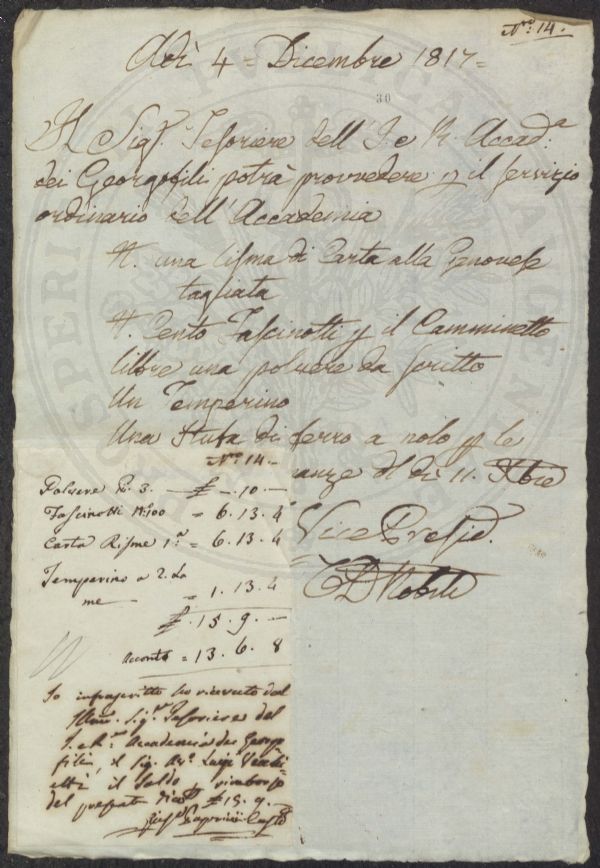 Nro: 14.
Adì 4 = Dicembre 1817 =
30
Il Sigr. Tesoriere dell'I. e R. Accada.
dei Georgofili potrà provvedere p il servizio
ordinario dell'Accademia
N. una Risma di Carta alla Genovese
tagliata
N. Cento Fascinotti p il Camminetto
libbre una polvere da scritto
Un Temperino
Una Stufa di ferro a nolo p le
anze del dì 11. Xbre
Vice Presid.
Nro 14. -
Polvere lb. 3. — £ -. 10 —
Fascinotti No. 100 = 6. 13. 4
Carta Risme 1.a = 6. 13. 4
Temperino a 2. La
me — = 1. 13. 4
£. 15. 9. —
acconto = 13. 6. 8
Io infrascritto ho ricevuto dal
Illmo. Sigr. Tesoriere del
I. e R. Accademia dei Georgo
fili, il Sig. Luigi
il Saldo e rimborso
del £ 15. 9.